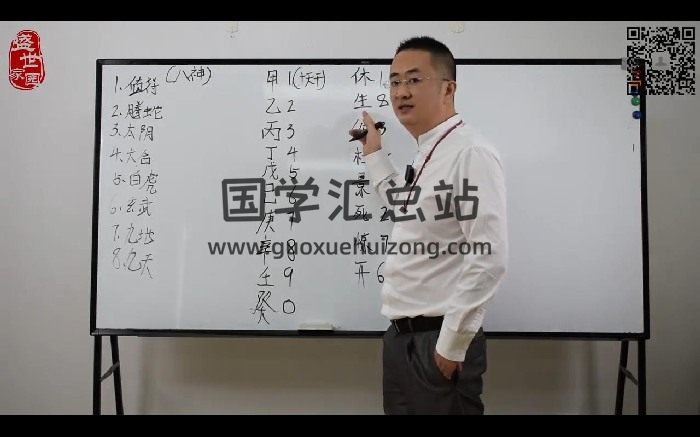 盛世家园
(八神)
1.值符
2.螣蛇
3.太阴
4.六合
5.白虎
6.玄武
7.九地
8.九天
甲 1(天干)
乙 2
丙 3
丁 4
戊 5
己
庚 7
辛 8
壬 9
癸 0
休
生 8
景
死 2
惊 7
开 6
国学汇总站
www.guoxuehuizong.com